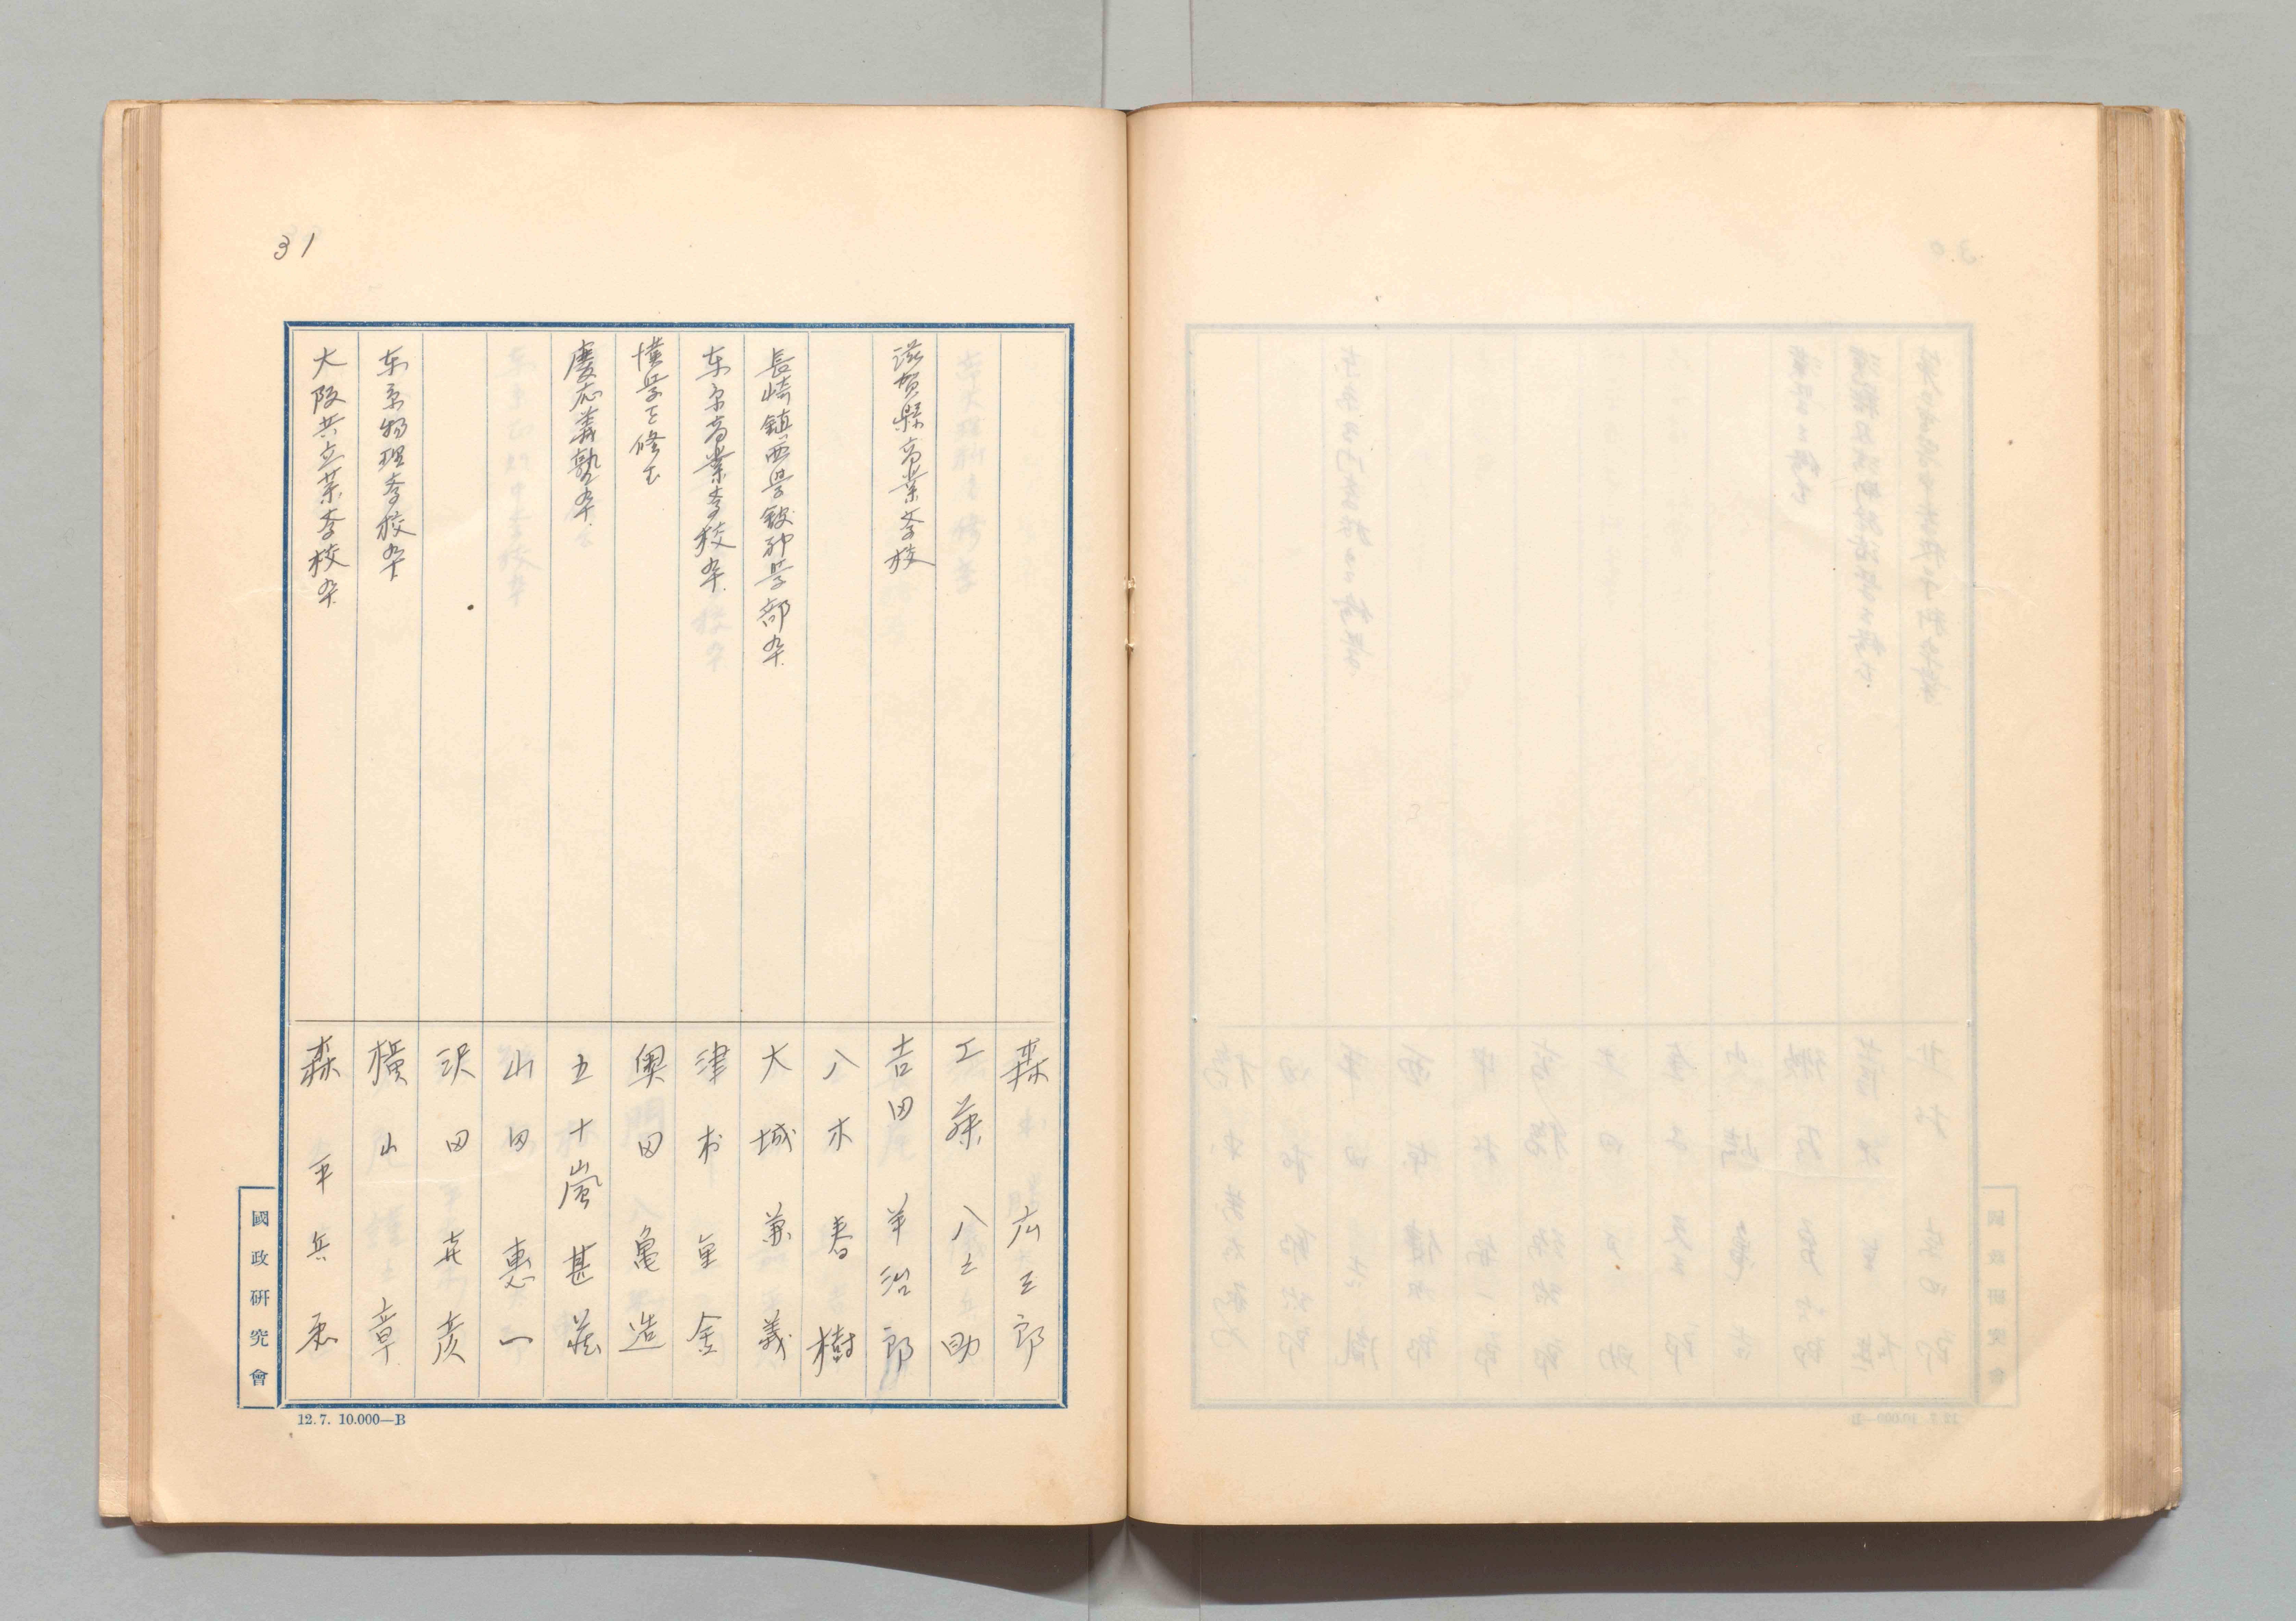 31
森 広三郎
工藤 八之助
滋賀縣商業学校 吉田 羊治郎
八木 春樹
長崎鎮西学館神学部卒. 大城 兼義
东京商業学校卒. 津村 重舎
漢学を修む 奥田 亀造
慶応義塾卒. 五十嵐 甚蔵
山田 惠一
沢田 喜彦
东京物理学校卒 橫山 章
大阪共立薬学校卒. 森 平兵衛
國政研究會
12.7. 10.000—B